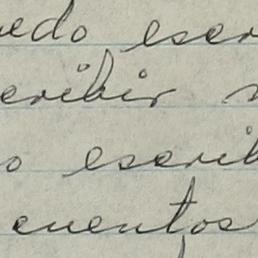 uedo escr
cribir n
o escrib
cuentos